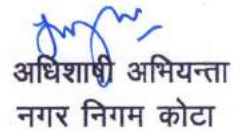 अधिशाषी अभियन्ता
नगर निगम कोटा